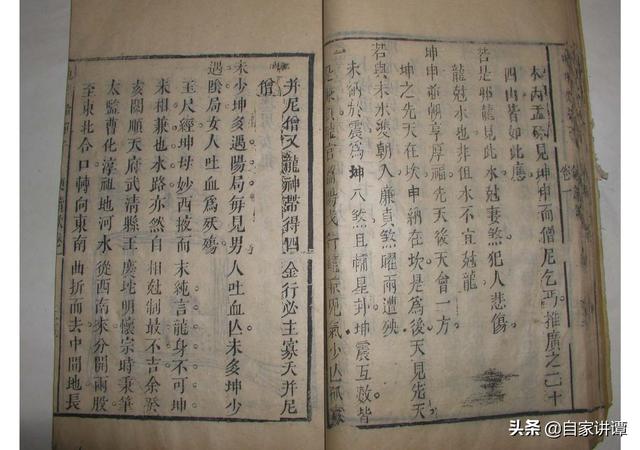 木丙孟砂見坤申而僧尼乞丐推廣之二十
四山皆如此應
若是邪龍見此水尅妻煞犯人悲傷
龍尅水也非但水不宜尅龍
坤申並朝享厚福先天後天會一方
坤之先天在坎申納在坎是為後天見先天
若與未水雙朝入廉貞煞曜兩遭殃
未納於震為坤八煞且輔星卦坤震互殺皆
并尼僧又龍神帶得四金行必主寡夭并尼
僧
未少坤多遇陽局每見男人吐血亾未多坤少
遇陰局女人吐血為殀殤
玉尺經坤母妙西披而未純言龍身不可坤
未相兼也水路亦然自相尅制最不吉余於
亥閣順天府武清縣王慶坨明懷宗時秉筆
太監曹化淳祖地河水從西南來分開兩股
至東北合口轉向東南曲折而去中間地長
卷一
头条 @自家讲谭